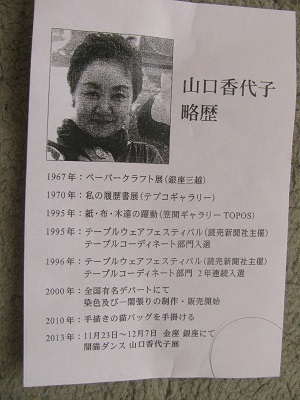 山口香代子
略歴
1967年：ペーパークラフト展(銀座三越)
1970年：私の履歴書展(テプコギャラリー)
1995年：紙・布・木達の躍動(笠間ギャラリーTOPOS)
1995年：テーブルウェアフェスティバル(読売新聞社主催)
テーブルコーディネート部門入選
1996年：テーブルウェアフェスティバル(読売新聞社主催)
テーブルコーディネート部門 2年連続入選
2000年：全国有名デパートにて
染色及び一閑張りの制作・販売開始
2010年：手描きの猫バッグを手掛ける
2013年：11月23日～12月7日 金座 銀座にて
闇猫ダンス 山口香代子展